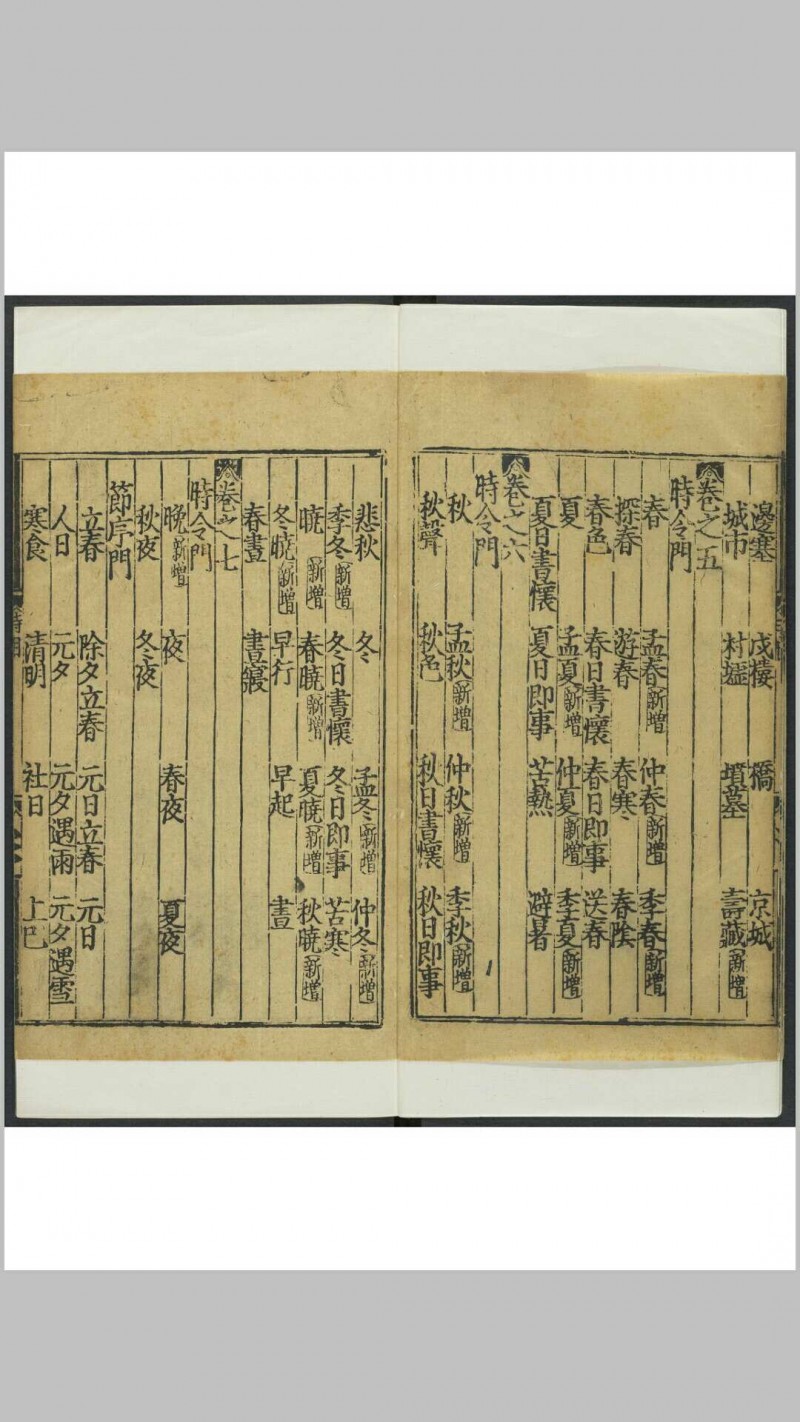 邊塞 戍樓 橋 京城
城市 村墟 墳墓 壽藏新增
卷之五
時令門
春 孟春新增 仲春新增 季春新增
探春 遊春 春寒 春陰
春色 春日書懷 春日即事 送春
夏 孟夏新增 仲夏新增 季夏新增
夏日書懷 夏日即事 苦熱 避暑
卷之六
時令門
秋 孟秋新增 仲秋新增 季秋新增
秋聲 秋色 秋日書懷 秋日即事
悲秋 冬 孟冬新增 仲冬新增
季冬新增 冬日書懷 冬日即事 苦寒
曉新增 春曉新增 夏曉新增 秋曉新增
冬曉新增 早行 早起 晝
春晝 晝寢
卷之七
時令門
晚新增 夜 春夜 夏夜
秋夜 冬夜
節序門
立春 除夕立春 元日立春 元日
人日 元夕 元夕遇雨 元夕遇雪
寒食 清明 社日 上巳